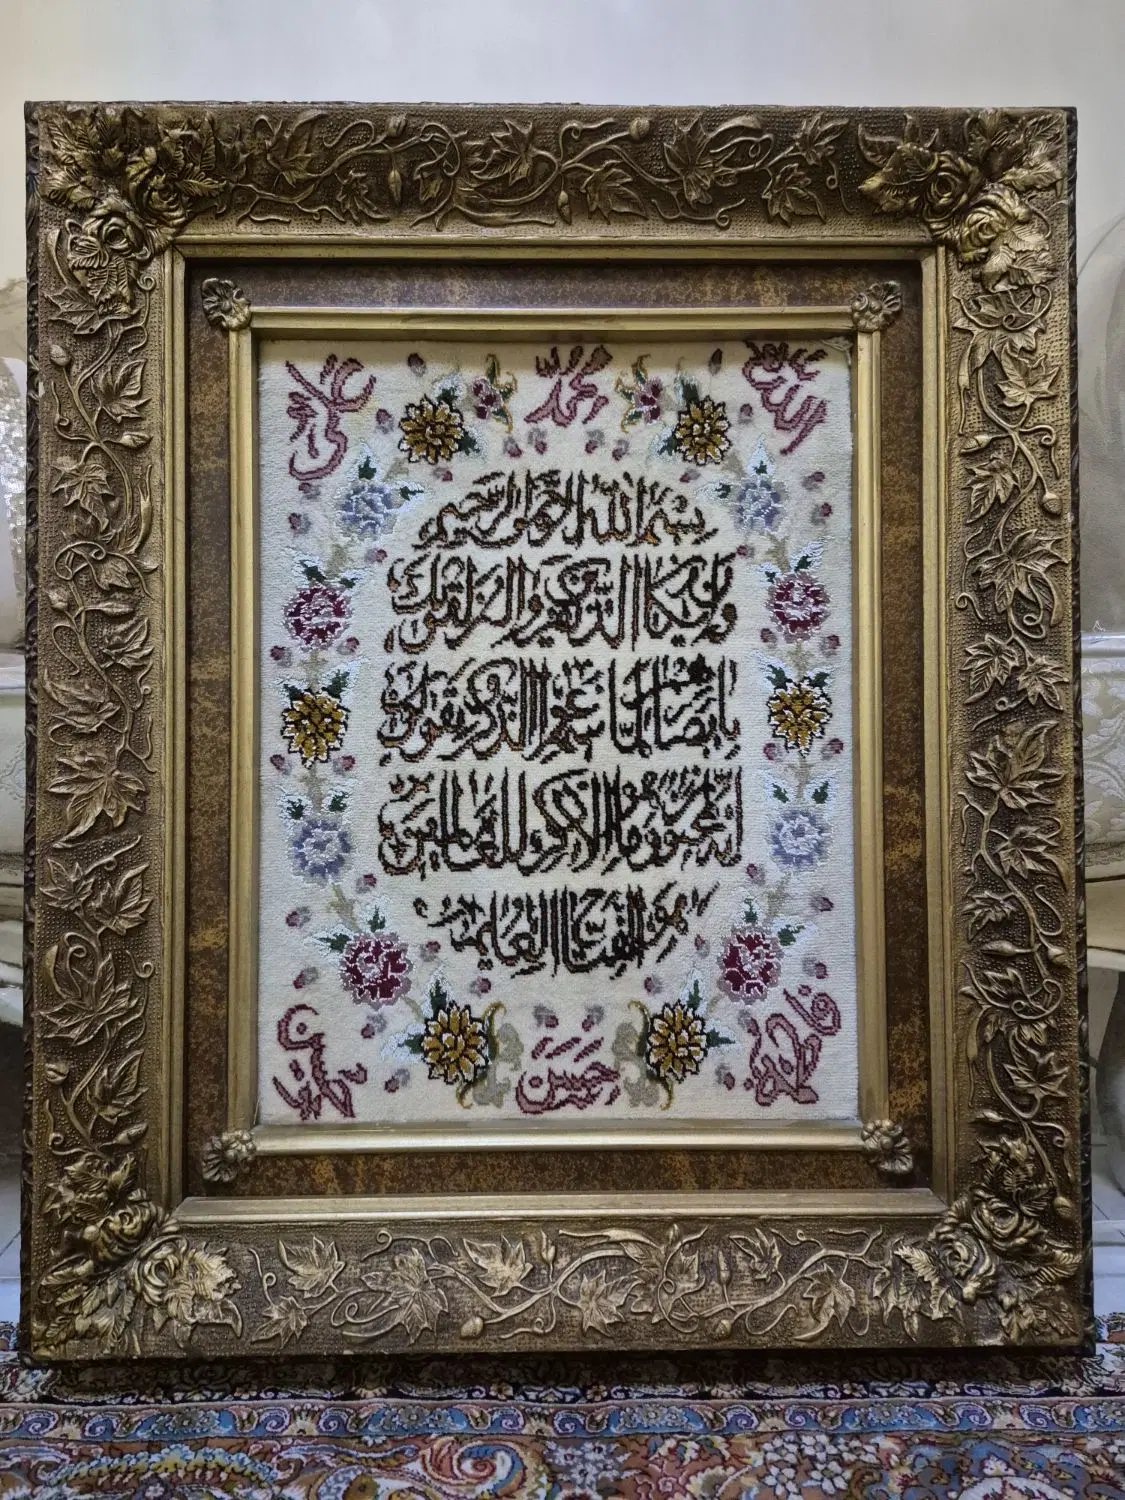 الله
محمد
علی
بسم الله الرحمن الرحیم
وان یکاد الذین کفروا لیزلقونک
بابصارهم لما سمعوا الذکر ویقولون
انه لمجنون وما هو الا ذکر للعالمین
هو الفتاح العلیم
فاطمه
حسین
حسن